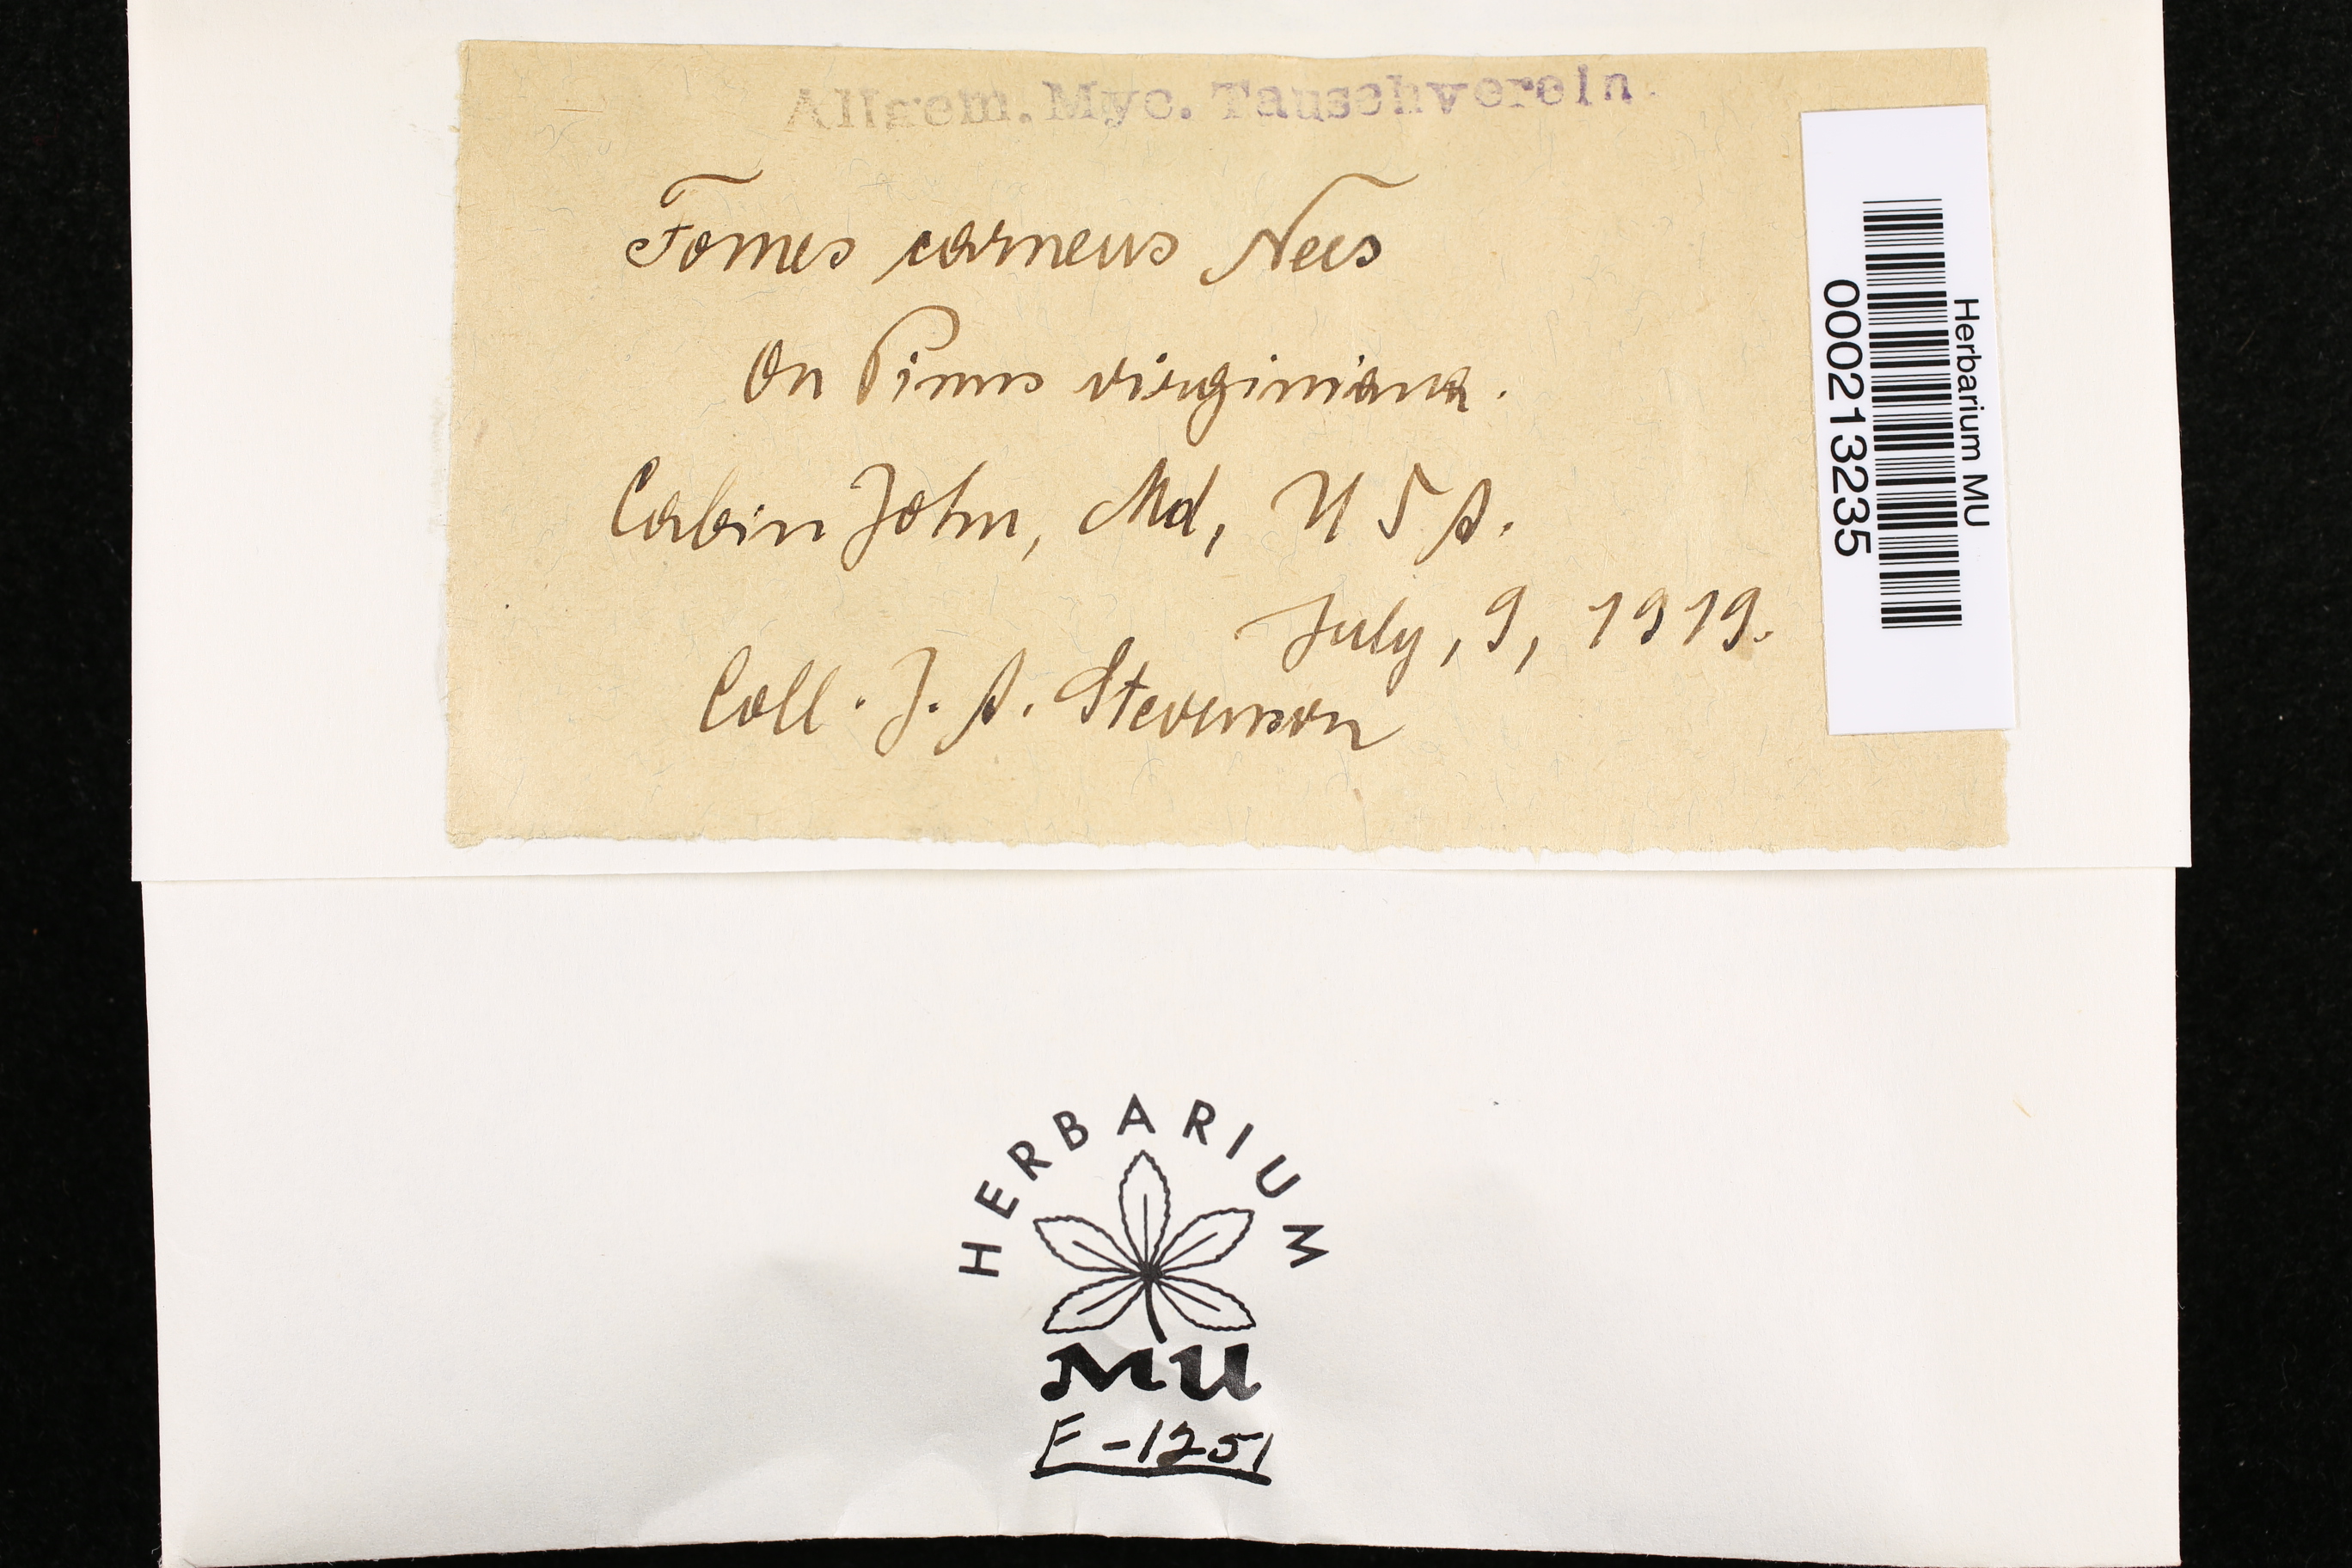 Allgem. Myc. Tauschverein
Fomes carneus Nees
On Pinus virginiana.
Cabin John, Md, USA.
July, 9, 1919.
Coll. J. A. Stevenson
Herbarium MU
000213235
HERBARIUM
MU
F-1251